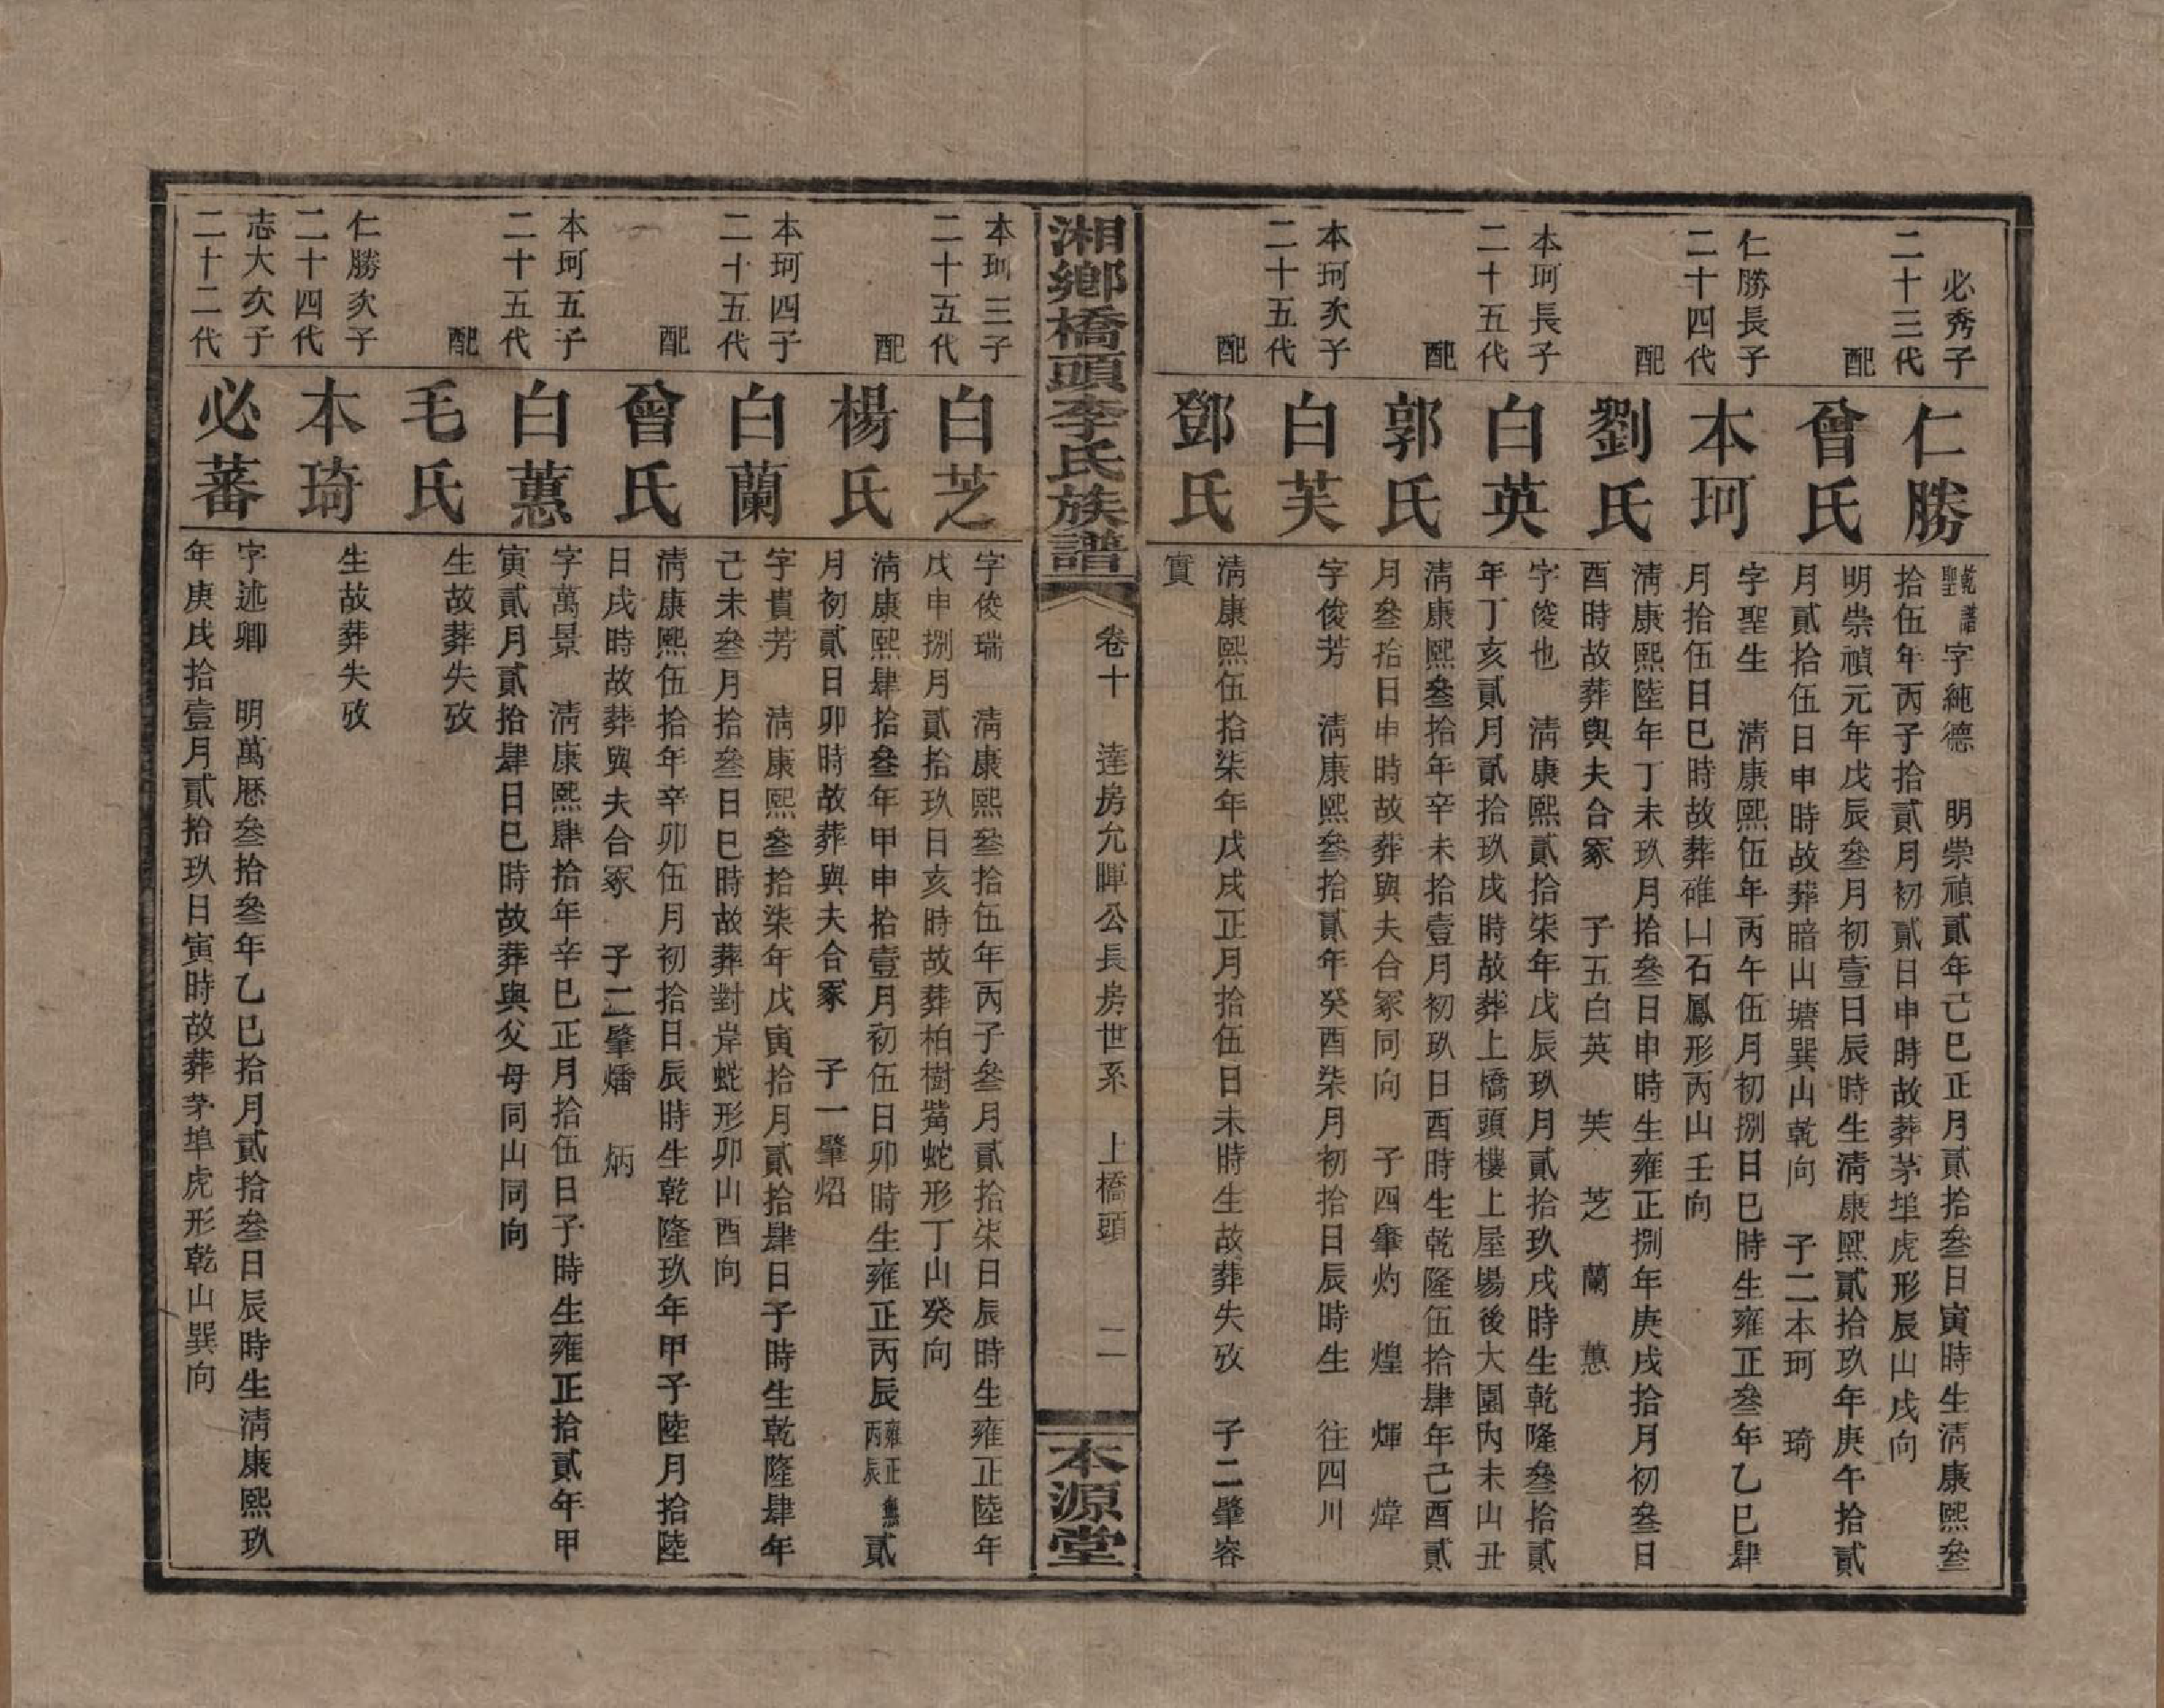 必秀子
二十三代
仁勝
乾譜聖 字純德 明崇禎貳年己巳正月貳拾叄日寅時生清康熙叄
拾伍年丙子拾貳月初貳日申時故葬茅埠虎形辰山戌向
配
曾氏
明崇禎元年戊辰叄月初壹日辰時生清康熙貳拾玖年庚午拾貳
月貳拾伍日申時故葬暗山塘巽山乾向 子二本珂 琦
仁勝長子
二十四代
本珂
字聖生 清康熙伍年丙午伍月初捌日巳時生雍正叄年乙巳肆
月拾伍日巳時故葬碓山石鳳形丙山壬向
配
劉氏
清康熙陸年丁未玖月拾叄日申時生雍正捌年庚戌拾月初叄日
酉時故葬與夫合冢 子五白英 芙 芝 蘭 蕙
本珂長子
二十五代
白英
字俊也 清康熙貳拾柒年戊辰玖月貳拾玖戌時生乾隆叄拾貳
年丁亥貳月貳拾玖戌時故葬上橋頭樓上屋場後大園內未山丑
配
郭氏
清康熙叄拾年辛未拾壹月初玖日酉時生乾隆伍拾肆年己酉貳
月叄拾日申時故葬與夫合冢同向 子四肇灼 煌 煇 煒
本珂次子
二十五代
白芙
字俊芳 清康熙叄拾貳年癸酉柒月初拾日辰時生 往四川
配
鄧氏
清康熙伍拾柒年戊戌正月拾伍日未時生故葬失攷 子二肇容
實
湘鄉橋頭李氏族譜
卷十 達房允暉公長房世系 上橋頭 二
本源堂
本珂三子
二十五代
白芝
字俊瑞 清康熙叄拾伍年丙子叄月貳拾柒日辰時生雍正陸年
戊申捌月貳拾玖日亥時故葬柏樹觜蛇形丁山癸向
配
楊氏
清康熙肆拾叄年甲申拾壹月初伍日卯時生雍正丙辰雍正無丙辰貳
月初貳日卯時故葬與夫合冢 子一肇炤
本珂四子
二十五代
白蘭
字貴芳 清康熙叄拾柒年戊寅拾月貳拾肆日子時生乾隆肆年
己未叄月拾叄日巳時故葬對岸蛇形卯山酉向
配
曾氏
清康熙伍拾年辛卯伍月初拾日辰時生乾隆玖年甲子陸月拾陸
日戌時故葬與夫合冢 子二肇燔 炳
本珂五子
二十五代
白蕙
字萬景 清康熙肆拾年辛巳正月拾伍日子時生雍正拾貳年甲
寅貳月貳拾肆日巳時故葬與父母同山同向
配
毛氏
生故葬失攷
仁勝次子
二十四代
本琦
生故葬失攷
志大次子
二十二代
必蕃
字述卿 明萬歷叄拾叄年乙巳拾月貳拾叄日辰時生清康熙玖
年庚戌拾壹月貳拾玖日寅時故葬茅埠虎形乾山巽向